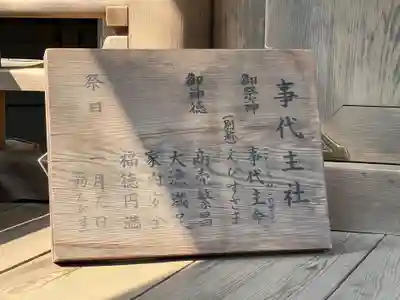 事代主社
御祭神 事代主命
(別称)えびすさま
御神徳 商売繁昌
大漁満足
家内安全
福徳円満
祭日 一月元日